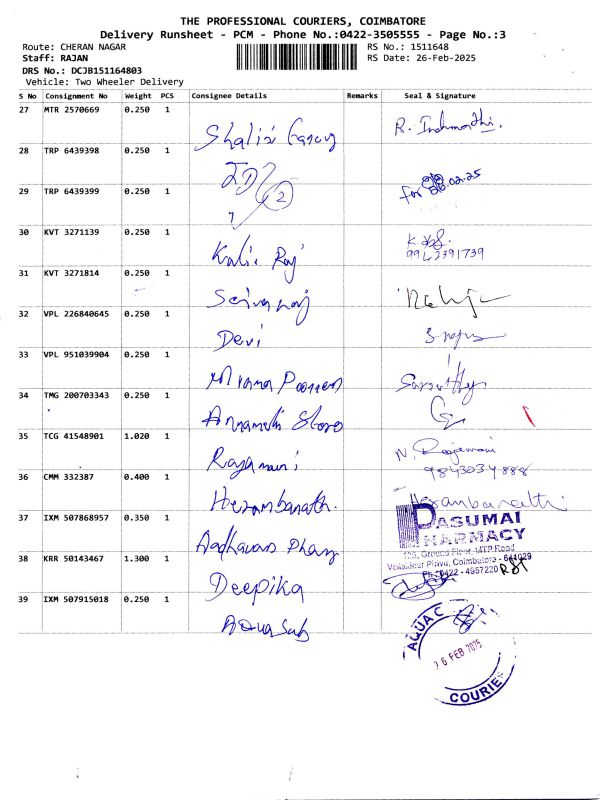 THE PROFESSIONAL COURIERS, COIMBATORE
Delivery Runsheet - PCM - Phone No.:0422-3505555 - Page No.:3
Route: CHERAN NAGAR RS No.: 1511648
Staff: RAJAN RS Date: 26-Feb-2025
DRS No.: DCJB151164803
Vehicle: Two Wheeler Delivery
S No Consignment No Weight PCS Consignee Details Remarks Seal & Signature
27 MTR 2570669 0.250 1
28 TRP 6439398 0.250 1
29 TRP 6439399 0.250 1
for 26.02.25
30 KVT 3271139 0.250 1
9942391739
31 KVT 3271814 0.250 1
32 VPL 226840645 0.250 1 Devi
33 VPL 951039904 0.250 1
34 TMG 200703343 0.250 1 Annamalai Store
35 TCG 41548901 1.020 1 Rajamani N. Rajamani
9843034888
36 CMM 332387 0.400 1 Herambanath. Herambanath
37 IXM 507868957 0.350 1 Aadhavan Pharm
PASUMAI
PHARMACY
Ground Floor, MTP Road
Coimbatore - 641029
Ph: 0422 - 4957220
38 KRR 50143467 1.300 1 Deepika
39 IXM 507915018 0.250 1 Aqua Sub
AQUA
26 FEB 2025
COURIER